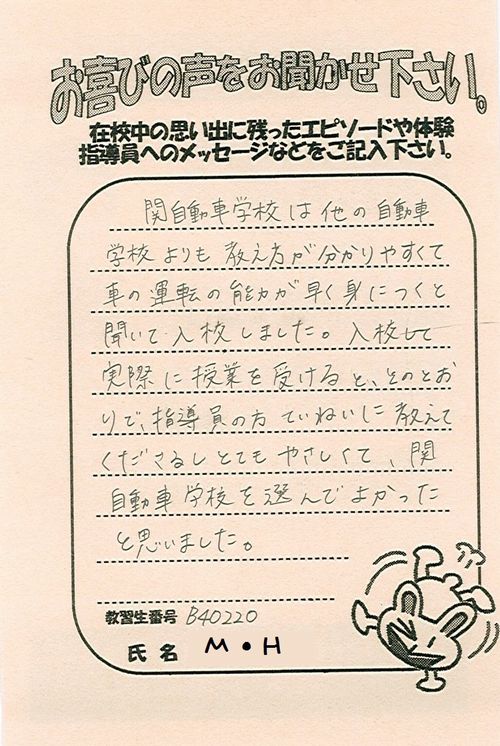 お喜びの声をお聞かせ下さい。
在校中の思い出に残ったエピソードや体験
指導員へのメッセージなどをご記入下さい。
関自動車学校は他の自動車
学校よりも教え方が分かりやすくて
車の運転の能力が早く身につくと
聞いて入校しました。入校して
実際に授業を受けると、そのとお
りで、指導員の方ていねいに教えて
くださるしとてもやさしくて、関
自動車学校を選んでよかった
と思いました。
教習生番号 B40220
氏名 M・H